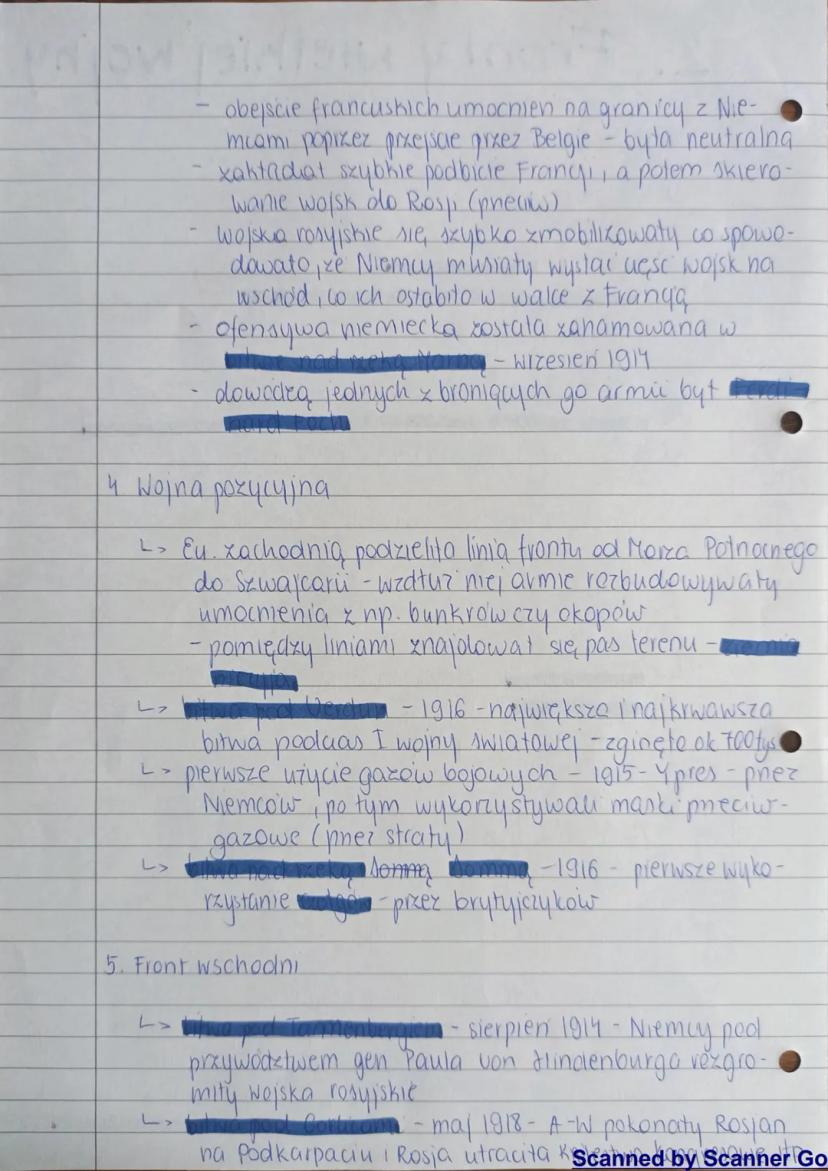 - obejście francuskich umocnien na granicy z Nie-
mcami poprzez przejscie przez Belgie - była neutralna
- zakładał szybkie podbicie Francji, a potem skiero-
wanie wojsk do Rosji (przeciw)
- wojska rosyjskie się szybko zmobilizowały co spowo-
dowało, że Niemcy musiały wysłać część wojsk na
wschód, co ich osłabiło w walce z Francją
- ofensywa niemiecka została zahamowana w
bitwie nad rzeką Marną - wrzesień 1914
- dowódcą jednych z broniących go armii był Ferdi-
nand Foch
4 Wojna pozycyjna
↳ Eu. zachodnią podzieliło linią frontu od Morza Północnego
do Szwajcarii - wzdłuż niej armie rozbudowywały
umocnienia z np. bunkrów czy okopów
- pomiędzy liniami znajdował się pas terenu - ziemia
niczyja
↳ bitwa pod Verdun - 1916 - największa i najkrwawsza
bitwa podczas I wojny światowej - zginęło ok 700tys
↳ pierwsze użycie gazów bojowych - 1915 - Ypres - przez
Niemców, po tym wykorzystywali maski przeciw-
gazowe (przez straty)
↳ bitwa nad rzeką Sommą Sommą - 1916 - pierwsze wyko-
rzystanie czołgów - przez brytyjczyków
5. Front wschodni
↳ bitwa pod Tannenbergiem - sierpień 1914 - Niemcy pod
przywództwem gen Paula von Hindenburga rozgro-
miły wojska rosyjskie
↳ bitwa pod Gorlicami - maj 1918 - A-W pokonały Rosjan
na Podkarpaciu i Rosja utraciła
Scanned by Scanner Go